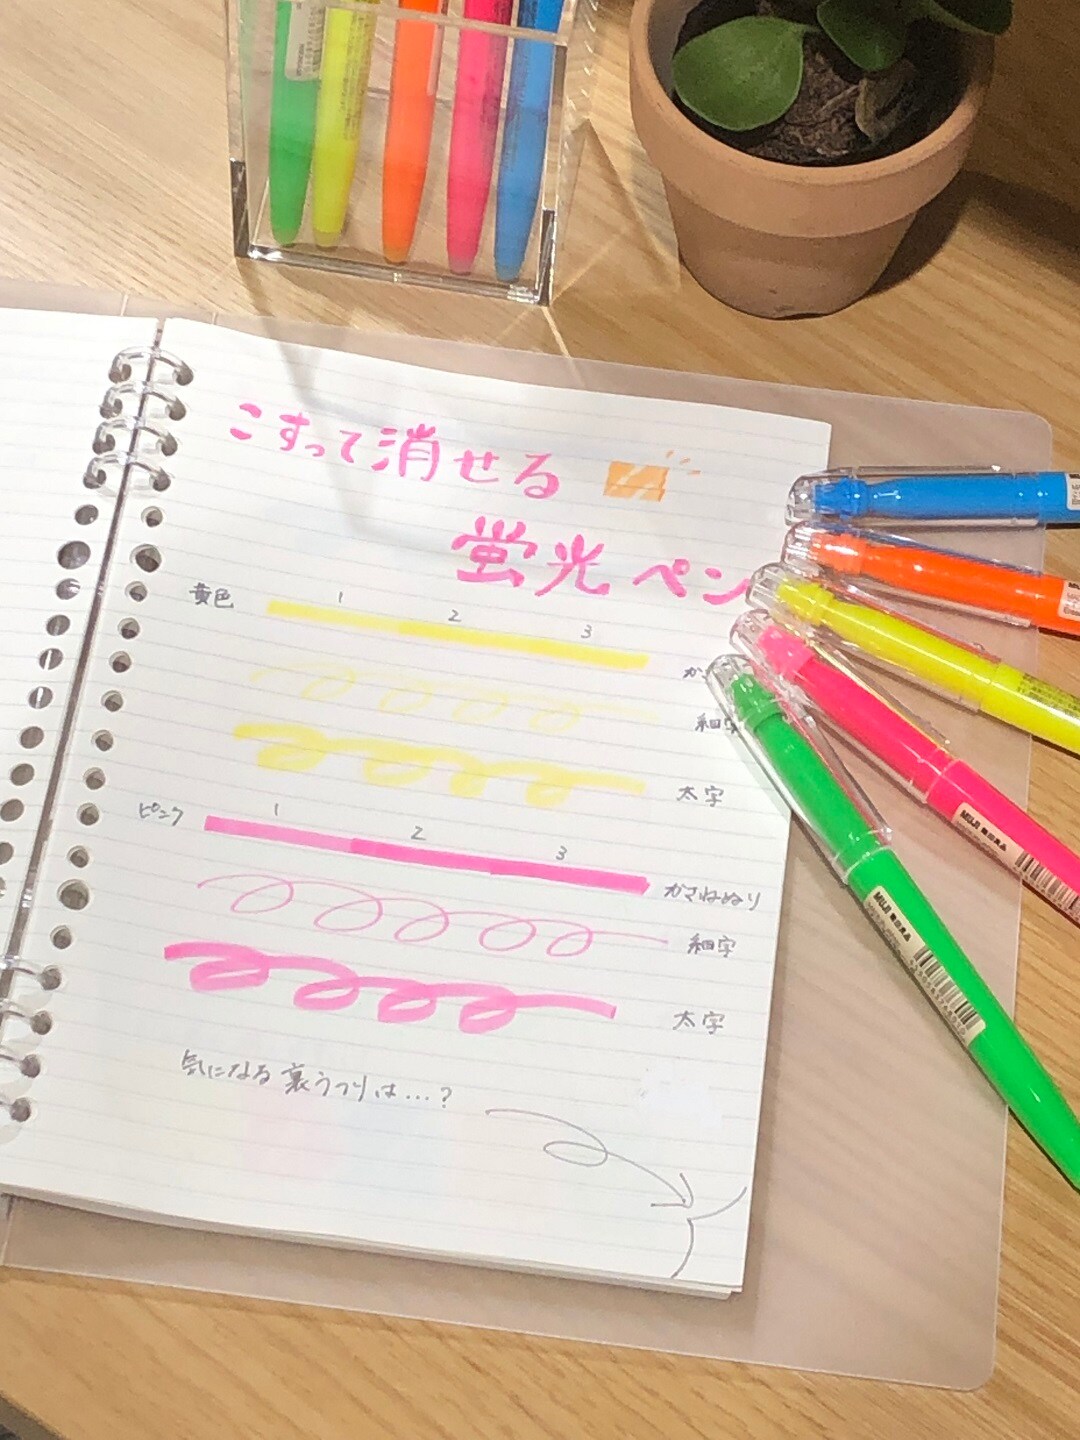 こすって消せる
蛍光ペン
黄色
1 2 3
細字
太字
ピンク
1 2 3
かさねぬり
細字
太字
気になる裏うつりは…?
MUJI 無印良品
MUJI 無印良品